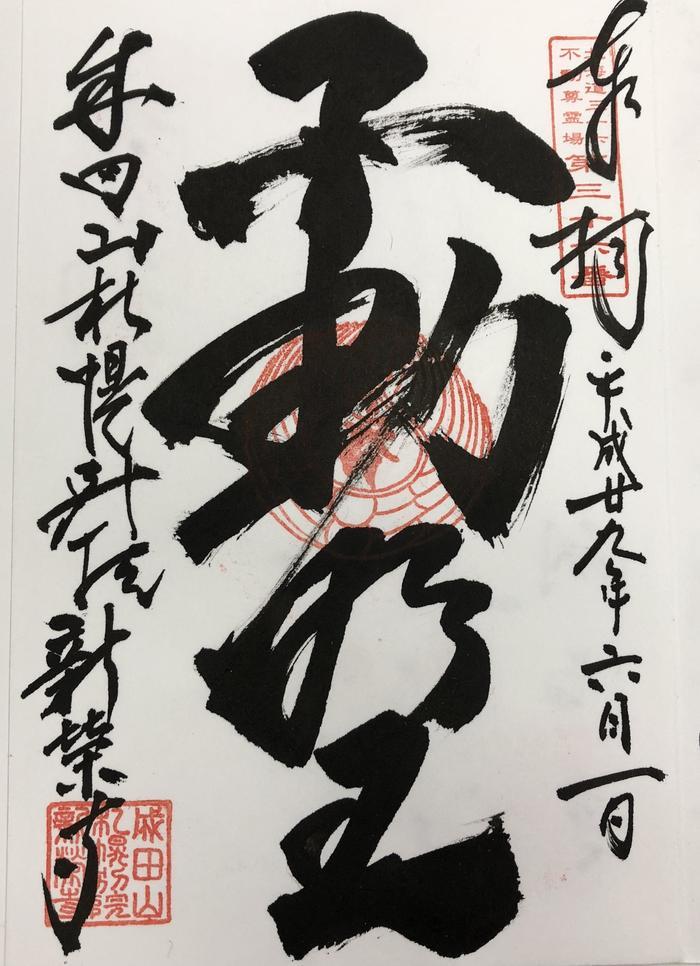 奉拝
平成廿九年六月一日
北海道三十六
不動尊霊場
第三十六番
不動明王
成田山札幌別院新栄寺
成田山
札幌別院
新栄寺